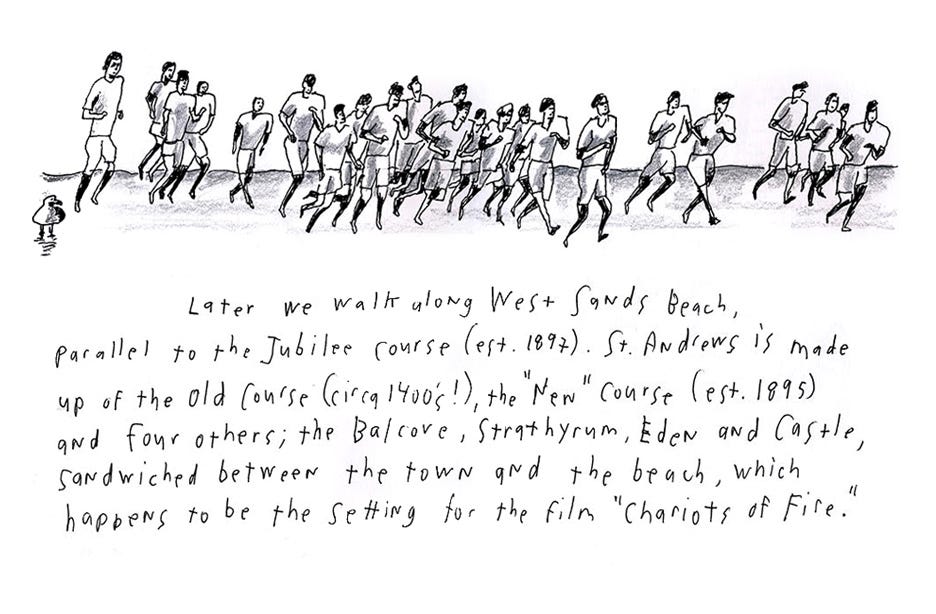 Later we walk along West Sands Beach,
parallel to the Jubilee course (est. 1897). St. Andrews is made
up of the Old Course (circa 1400's!), the "New" Course (est. 1895)
and four others; the Balcove, Strathyrum, Eden and Castle,
sandwiched between the town and the beach, which
happens to be the setting for the film "Chariots of Fire."